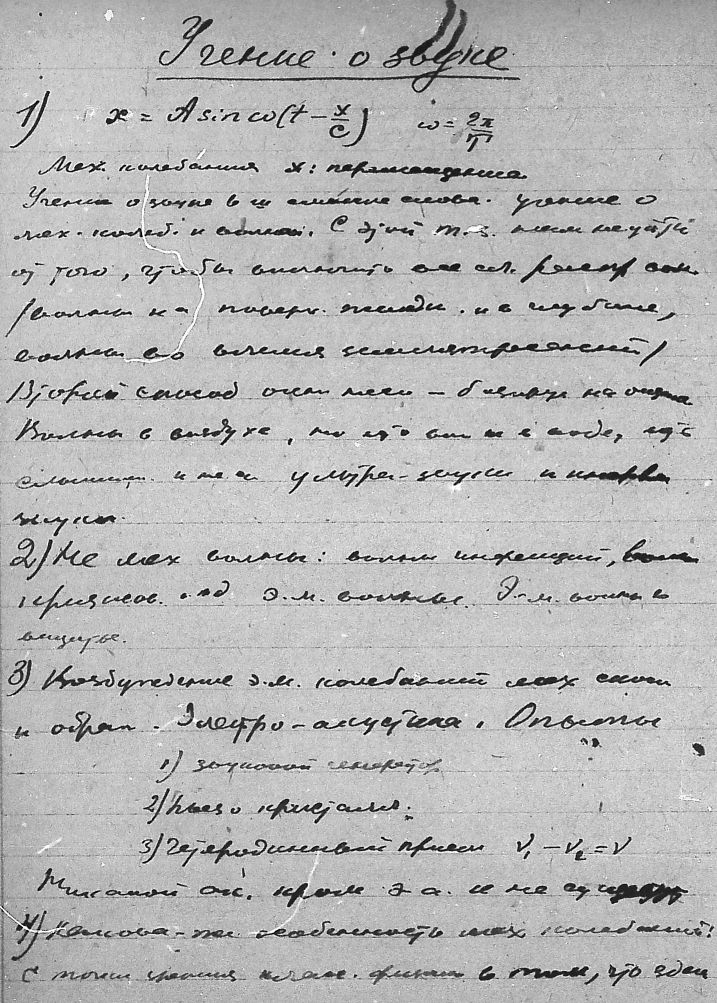 Учение о звуке
1) x = A sin ω(t − x/c) ω = 2π/T
Мех. колебания x: перемещение
Учение о звуке в ш смысле слова. учение о
мех. колеб. и волнах. С этой т.з. нам не уйти
от того, чтобы включить все
/волны на поверх. жидк. и в глубине,
волны во время землетрясений/
Второй способ - базируе на
Волны в воздухе, но и в воде, где
слышим. ультра-звуки и
звуки.
2) Не мех волны: волны инфекций,
кризисов. э.-м. волны. Э.-м. волны в
веществе.
3) Возбуждение э.м. колебаний мех
и обрат. Электро-акустика. Опыты
1) звуковой генератор
2) Пьезо кристалл.
3) Гетеродинный прием ν₁ − ν₂ = ν
Никакой ак. кроме э а. и не существ
4) Какова-же особенность мех колебаний?
С точки зрения клас. физики в том, что здесь